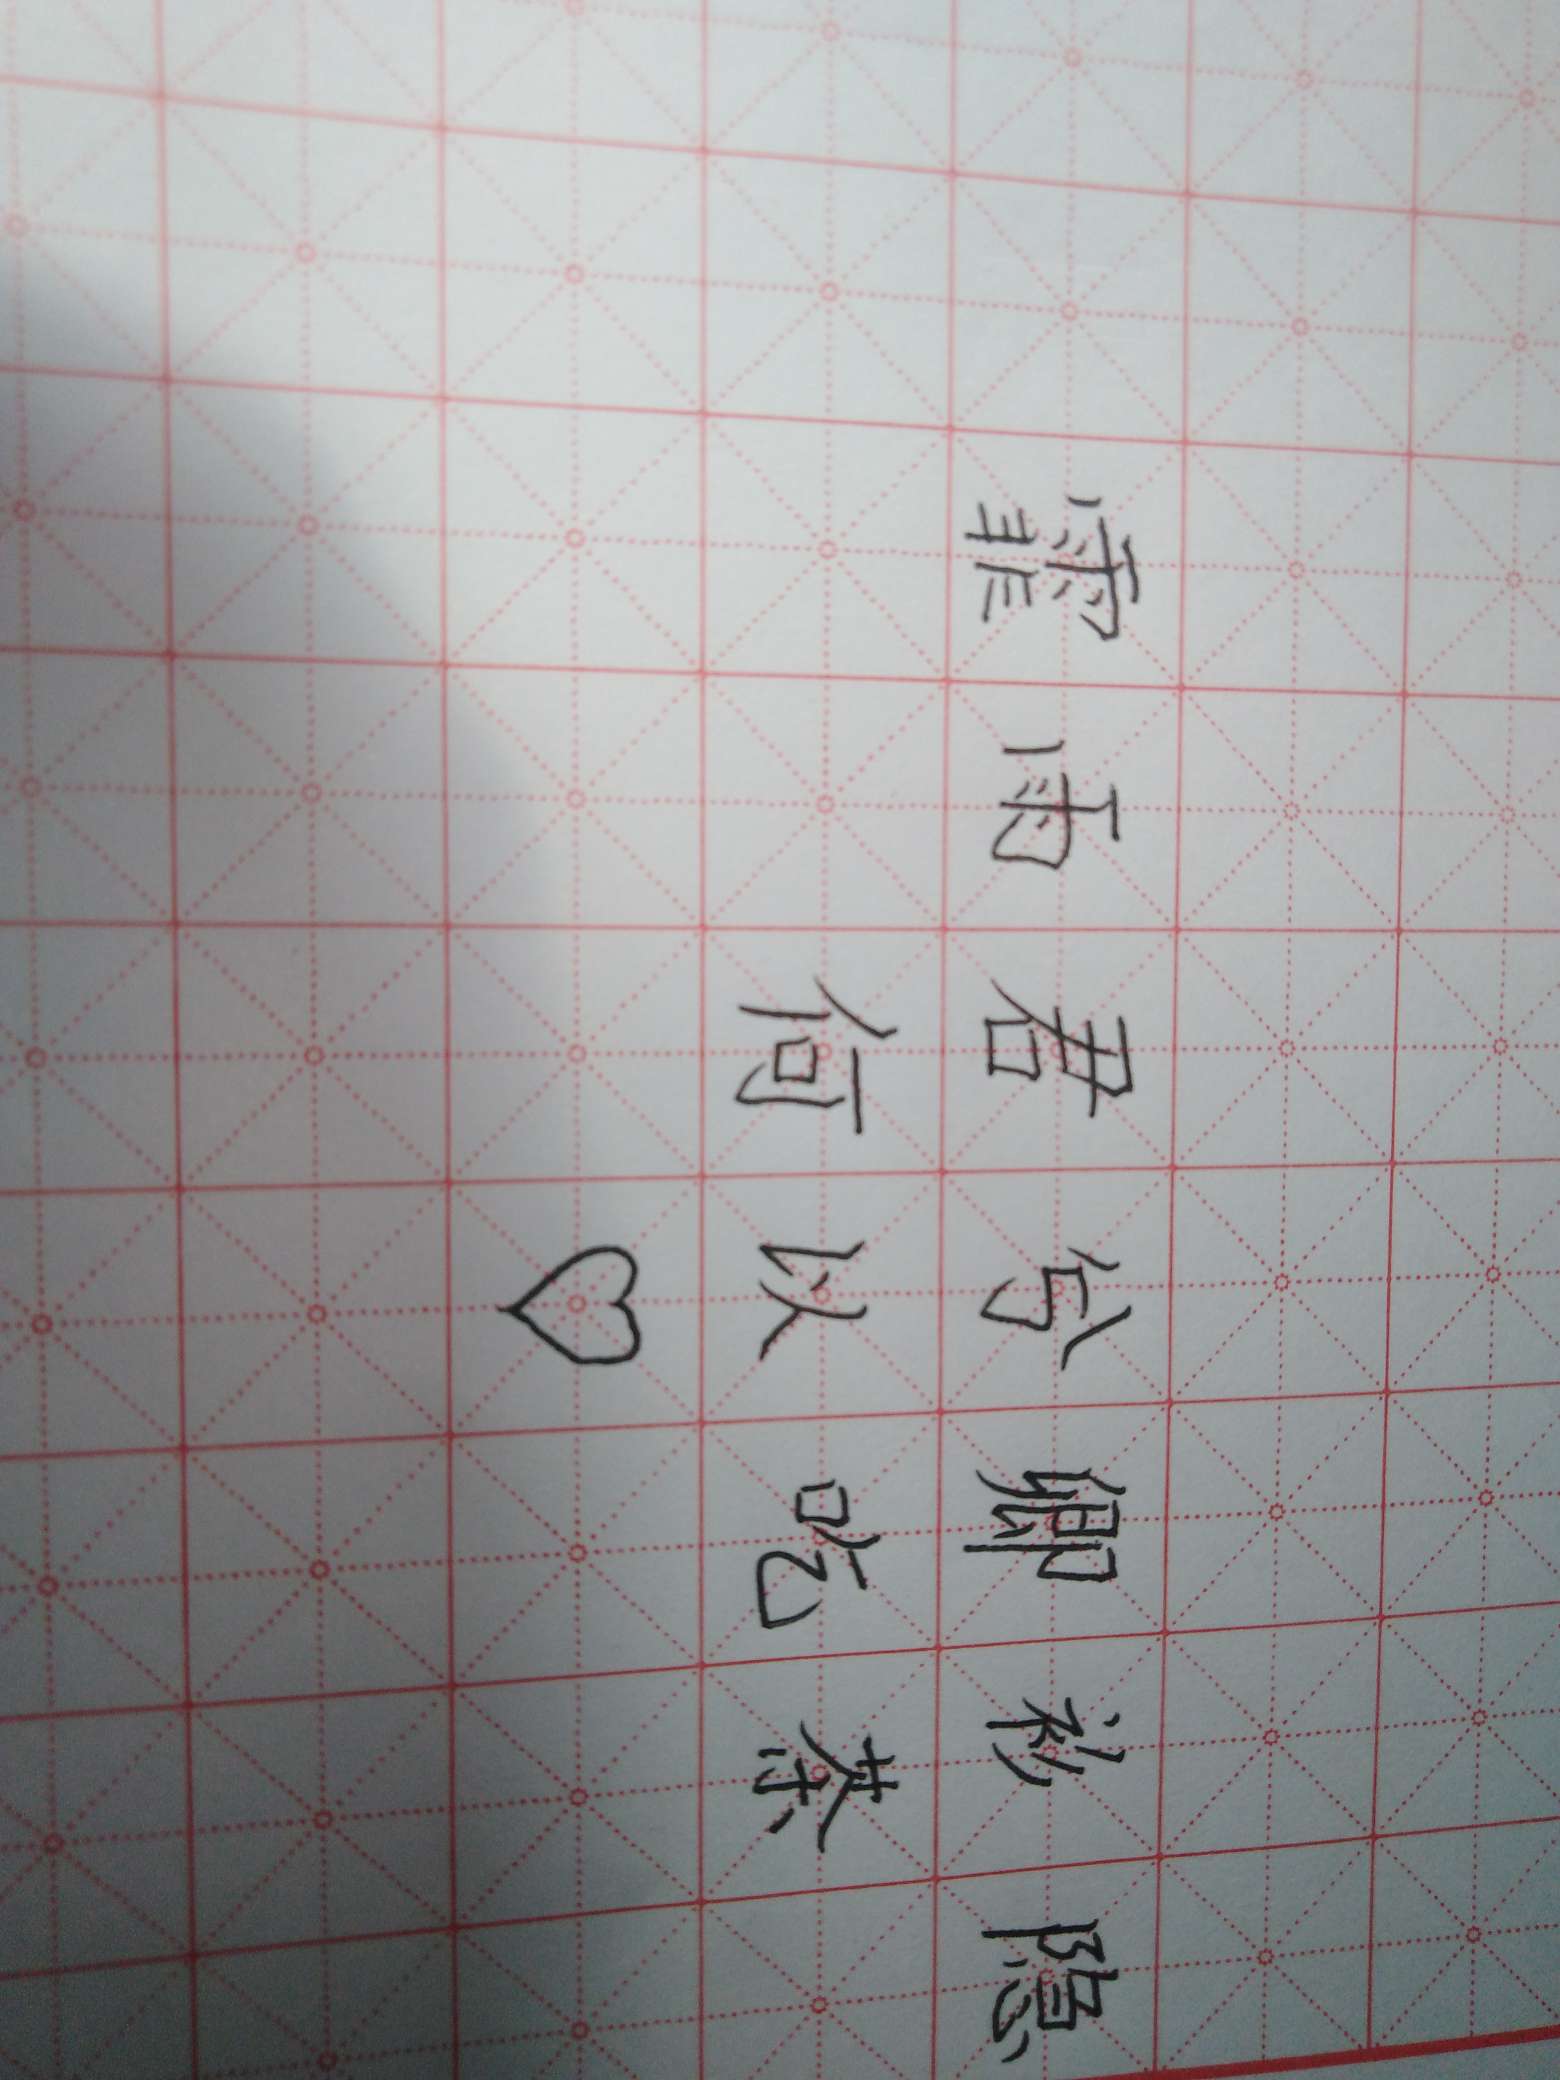 霏雨君兮卿衫隐
何以吃茶
♡